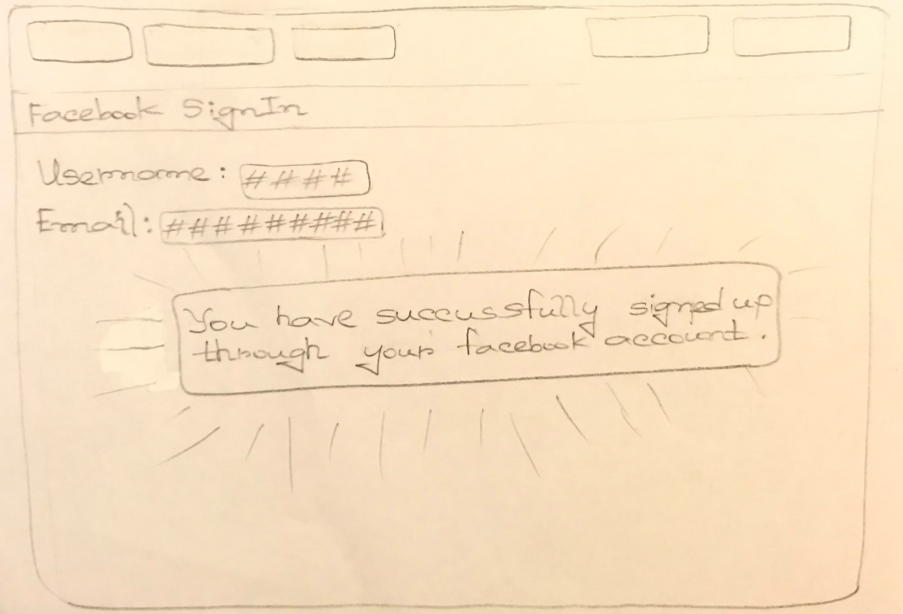 Facebook SignIn
Username: ####
Email: #########
You have successfully signed up
through your facebook account.